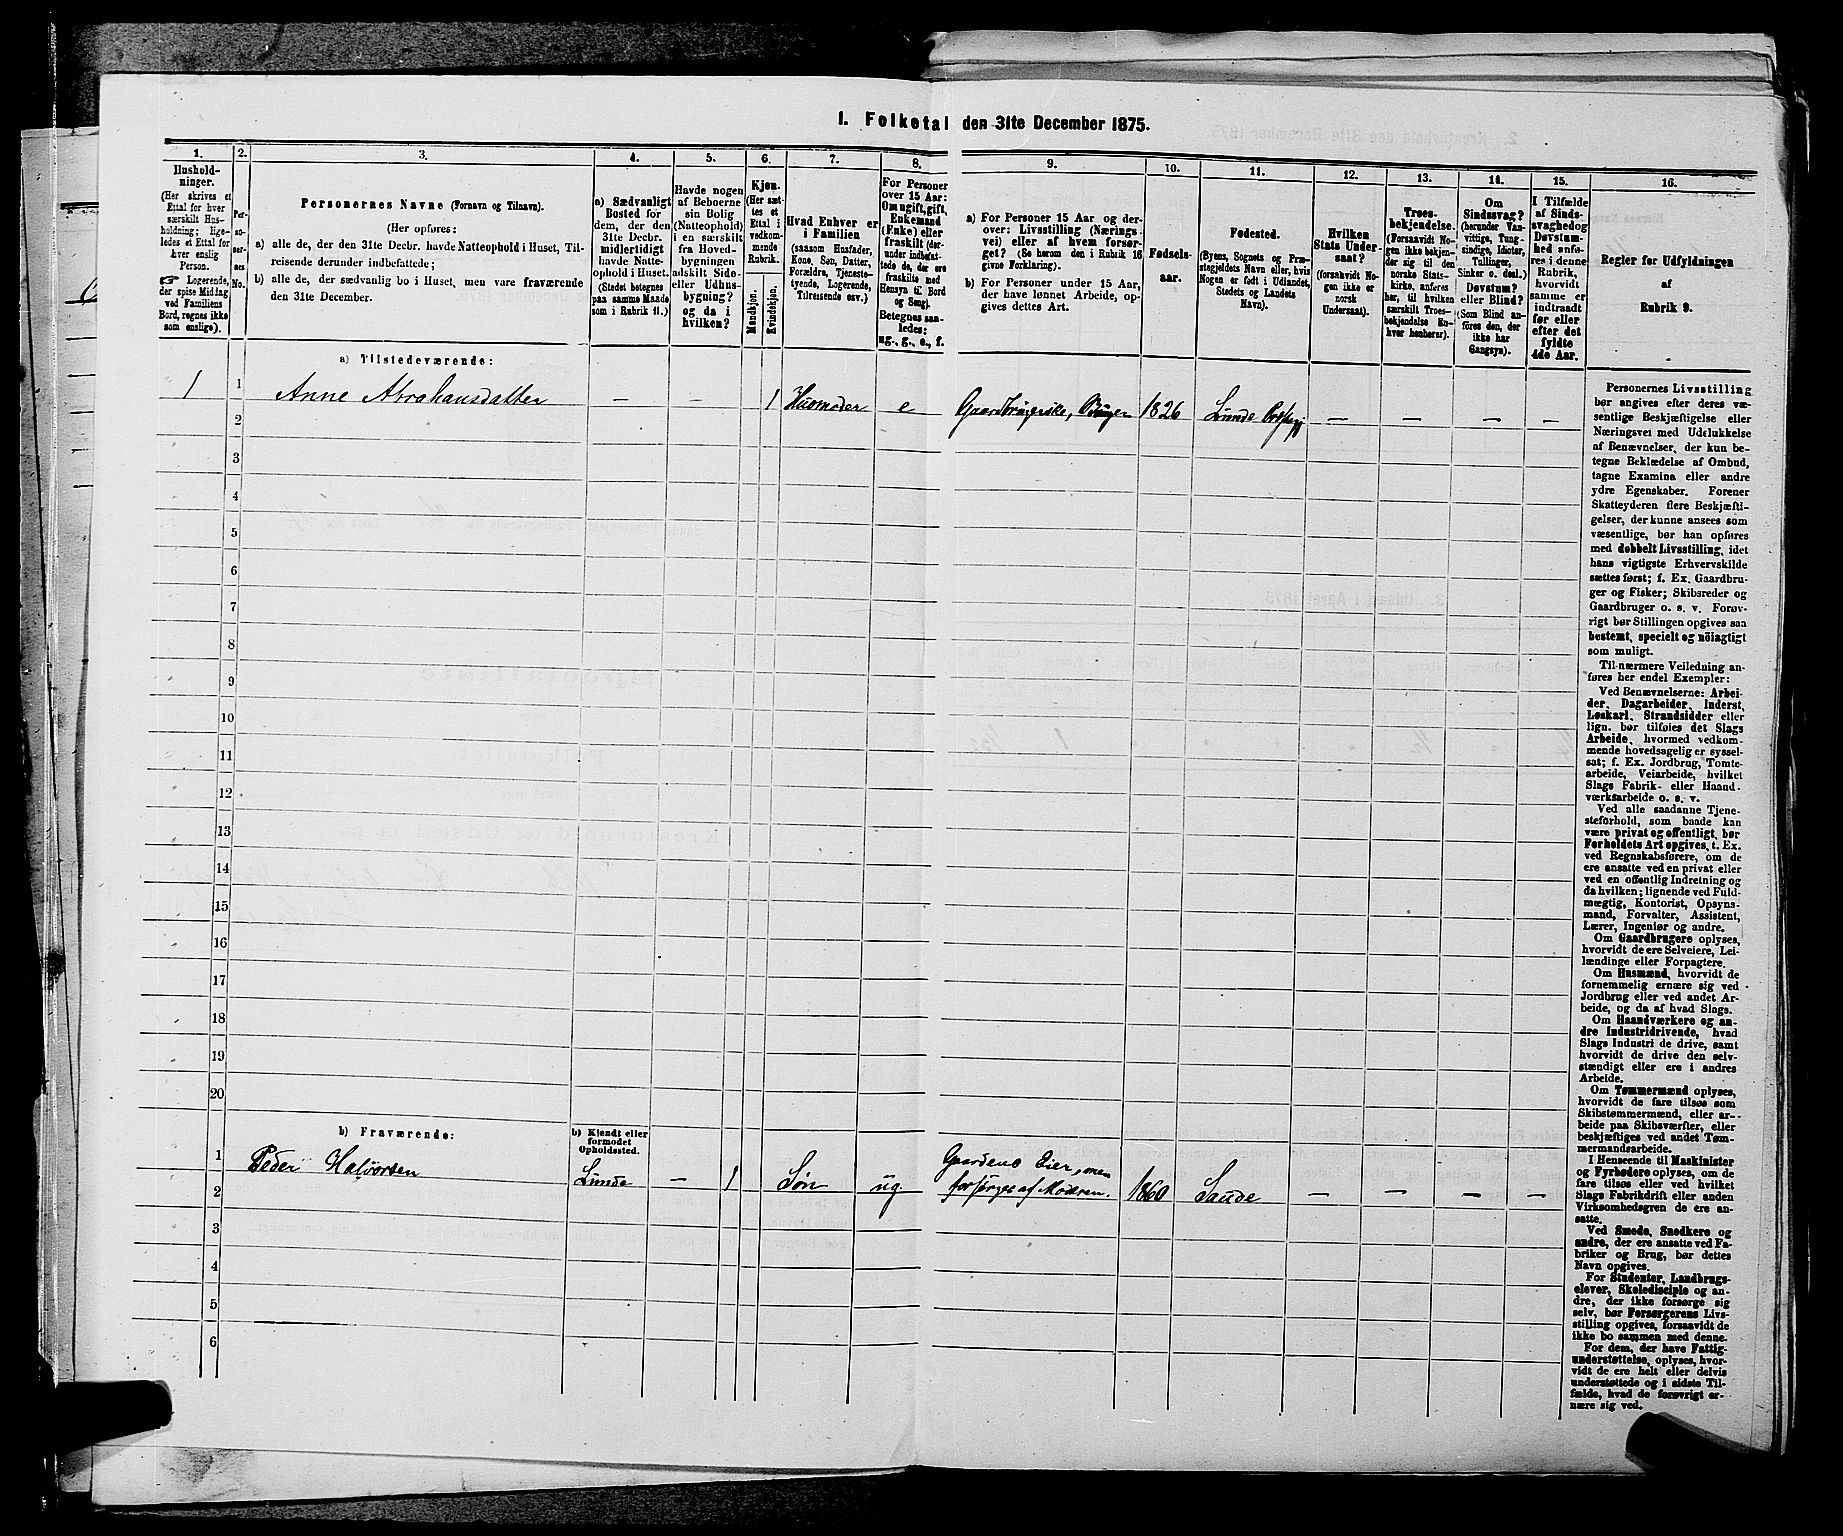 1. Folketal den 31te December 1875.
1.
2.
3.
4.
5.
6.
7.
8.
9.
10.
11.
12.
13.
14.
15.
16.
Hushold-
ninger.
(Her skrives et
Ettal for hver
særskilt Hus-
holdning; lige-
ledes et Ettal for
hver enslig
Person.
☞ Logerende,
der spise Middag
ved Familiens
Bord, regnes ikke
som enslige).
Per-
so-
ner-
nes
No.
Personernes Navne (Fornavn og Tilnavn).
(Her opføres:
a) alle de, der den 31te Decbr. havde Natteophold i Huset, Til-
reisende derunder indbefattede;
b) alle de, der sædvanlig bo i Huset, men vare fraværende
den 31te December.
a) Sædvanligt
Bosted for
dem, der den
31te Decbr.
midlertidigt
havde Natte-
ophold i Huset.
(Stedet betegnes
paa samme Maade
som i Rubrik 11.)
Havde nogen
af Beboerne
sin Bolig
(Natteophold)
i en særskilt
fra Hoved-
bygningen
adskilt Side-
eller Udhus-
bygning?
og da i
hvilken?
Kjøn.
(Her sæt-
tes et
Ettal i
vedkom-
mende
Rubrik.
Mandkjøn.
Kvindekjøn.
Hvad Enhver er
i Familien
(saasom Husfader,
Kone, Søn, Datter,
Forældre, Tjeneste-
tyende, Logerende,
Tilreisende osv.)
For Personer
over 15 Aar:
Om ugift, gift,
Enkemand
(Enke) eller
fraskilt (der-
under indbefat-
tede de, der ere
fraskilte med
Hensyn til Bord
og Seng).
Betegnes saa-
ledes:
ug., g., e., f.
a) For Personer 15 Aar og der-
over: Livsstilling (Nærings-
vei) eller af hvem forsør-
get? (Se herom den i Rubrik 16
givne Forklaring).
b) For Personer under 15 Aar,
der have lønnet Arbeide, op-
gives dettes Art.
Fødsels-
aar.
Fødested.
(Byens, Sognets og Præ-
stegjeldets Navn eller, hvis
Nogen er født i Udlandet,
Stedets og Landets
Navn).
Hvilken
Stats Under-
saat?
(forsaavidt No-
gen ikke er
norsk
Undersaat).
Troes-
bekjendelse.
(Forsaavidt No-
gen ikke bekjen-
der sig til den
norske Stats-
kirke, anføres
her, til hvilken
særskilt Troes-
bekjendelse En-
hver henhører).
Om
Sindssvag?
(herunder Van-
vittige, Tung-
sindige, Idioter,
Tullinger,
Sinker o. desl.)
Døvstum?
eller Blind?
(Som Blind an-
føres den, der
ikke har
Gangsyn).
I Tilfælde
af Sinds-
svaghed og
Døvstum-
hed anfø-
res i denne
Rubrik,
hvorvidt
samme er
indtraadt
før eller
efter det
fyldte
4de Aar.
Regler for Udfyldningen
af
Rubrik 9.
a) Tilstedeværende:
1 1 Anne Abrahansdatter — — 1 Husmoder e Gaardbrugerske, 1826 Lunde — — — —
2
3
4
5
6
7
8
9
10
11
12
13
14
15
16
17
18
19
20
b) Fraværende:
b) Kjendt eller
formodet
Opholdssted.
1
Peder Halvorsen Lunde — 1 Søn ug Gaardens Eier, men
forsørges af Moderen. 1860 Saude — — — —
2
3
4
5
6
Personernes Livsstilling
bør angives efter deres væ-
sentlige Beskjæftigelse eller
Næringsvei med Udelukkelse
af Benævnelser, der kun be-
tegne Beklædelse af Ombud,
tagne Examina eller andre
ydre Egenskaber. Forener
Skatteyderen flere Beskjæfti-
gelser, der kunne ansees som
væsentlige, bør han opføres
med dobbelt Livsstilling, idet
hans vigtigste Erhvervskilde
sættes først; f. Ex. Gaardbru-
ger og Fisker; Skibsreder og
Gaardbruger o. s. v. Forøv-
rigt bør Stillingen opgives saa
bestemt, specielt og nöiagtigt
som muligt.
Til nærmere Veiledning an-
føres her endel Exempler:
Ved Benævnelserne: Arbei-
der, Dagarbeider, Inderst,
Løskarl, Strandsidder eller
lign. bør tilføies det Slags
Arbeide, hvormed vedkom-
mende hovedsagelig er syssel-
sat; f. Ex. Jordbrug, Tomte-
arbeide, Veiarbeide, hvilket
Slags Fabrik- eller Haand-
værksarbeide o. s. v.
Ved alle saadanne Tjene-
steforhold, som baade kan
være privat og offentligt, bør
Forholdets Art opgives, t. Ex.
ved Regnskabsførere, om de
ere ansatte ved en privat eller
ved en offentlig Indretning og
da hvilken; lignende ved Fuld-
mægtig, Kontorist, Opsyns-
mand, Forvalter, Assistent,
Lærer, Ingeniør og andre.
Om Gaardbrugere oplyses,
hvorvidt de ere Selveiere, Lei-
lændinge eller Forpagtere.
Om Husmænd, hvorvidt de
fornemmelig ernære sig ved
Jordbrug eller ved andet Ar-
beide, og da af hvad Slags.
Om Haandværkere og an-
dre Industridrivende, hvad
Slags Industri de drive, samt
hvorvidt de drive den selv-
stændigt eller ere i andres
Arbeide.
Om Tømmermænd oplyses,
hvorvidt de fare tilsøs som
Skibstømmermænd, eller ar-
beide paa Skibsværfter, eller
beskjæftiges ved andet Tøm-
mermandsarbeide.
I Henseende til Maskinister
og Fyrbødere oplyses, om de
fare tilsøs eller ved hvilket
Slags Fabrikdrift eller anden
Virksomhedsgren de ere an-
satte.
Ved Smede, Snedkere og
andre, der ere ansatte ved Fa-
briker og Brug, bør dettes
Navn opgives.
For Studenter, Landbrugs-
elever, Skoledisciple og an-
dre, der ikke forsørge sig
selv, bør Forsørgerens Livs-
stilling opgives, forsaavidt de
ikke bo sammen med denne.
For dem, der have Fattig-
understøttelse, oplyses, hvor-
vidt de ere helt eller delvis
understøttede og i sidste Til-
fælde, hvad de forøvrigt er-
nære sig ved.